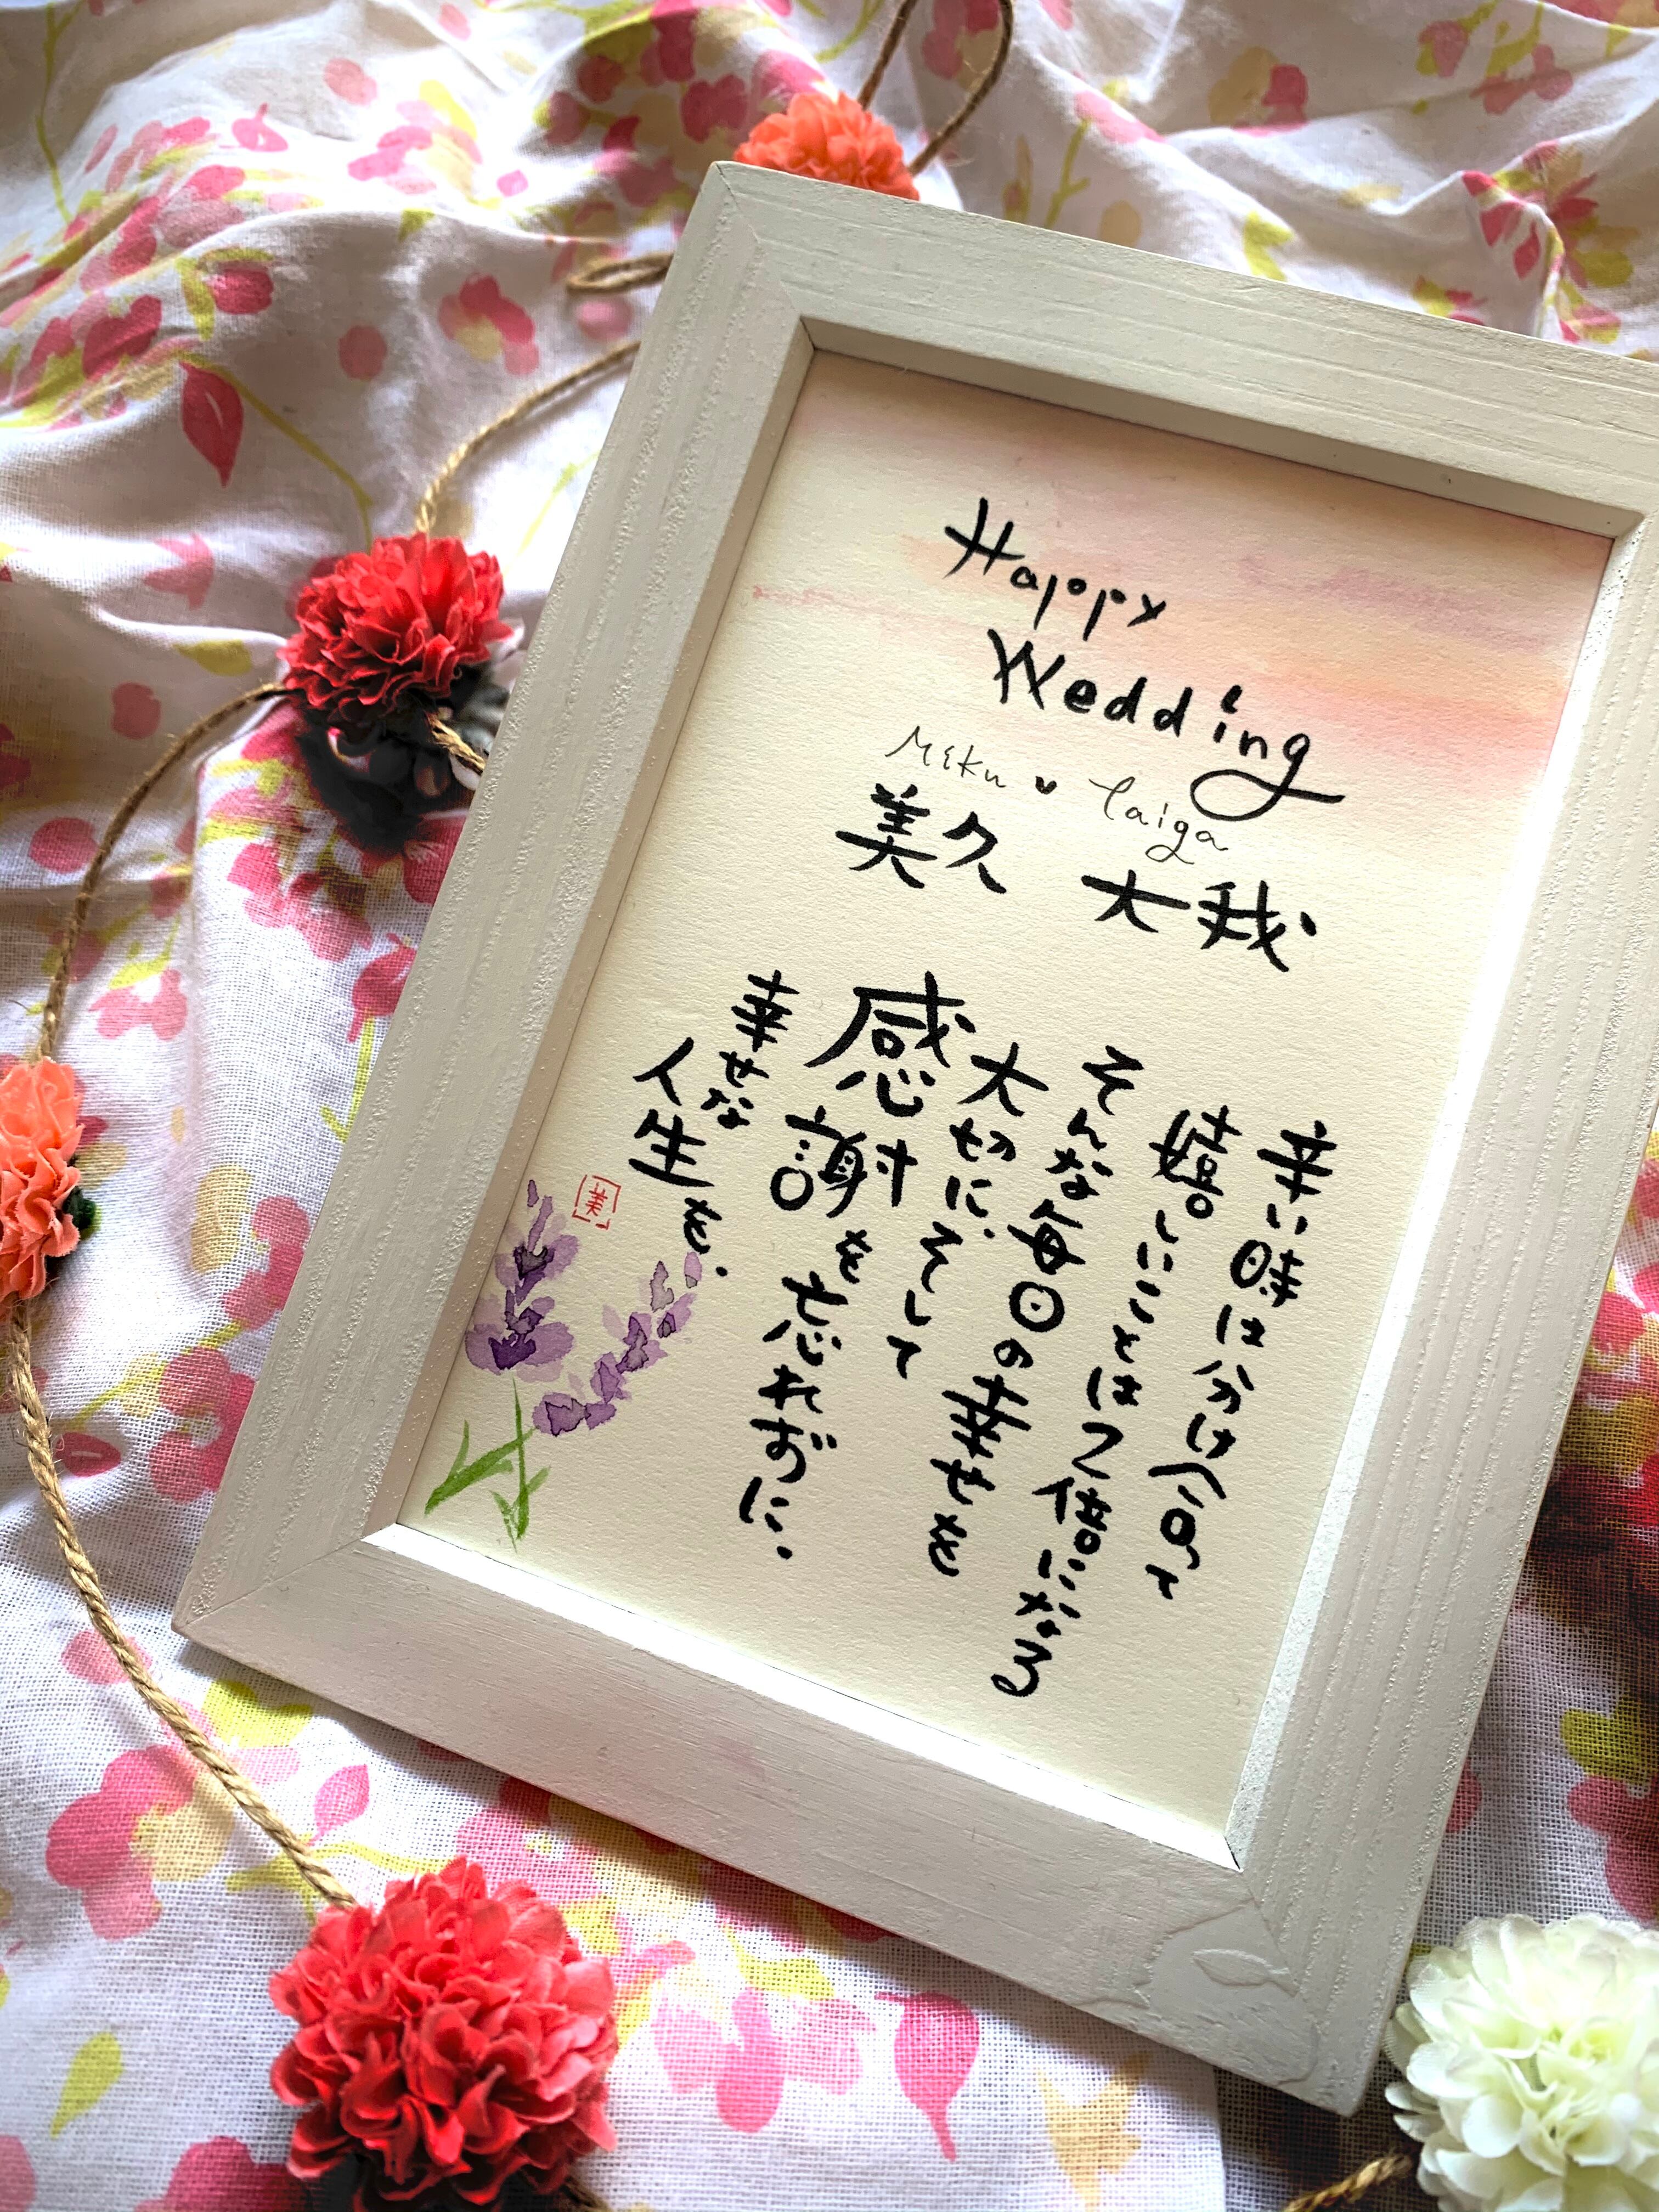 Happy
Wedding
Miku ♥ Taiga
美久 大我
辛い時は分け合って
嬉しいことは2倍になる
そんな毎日の幸せを
大切に、そして
感謝を忘れずに..
幸せな
人生を.
美